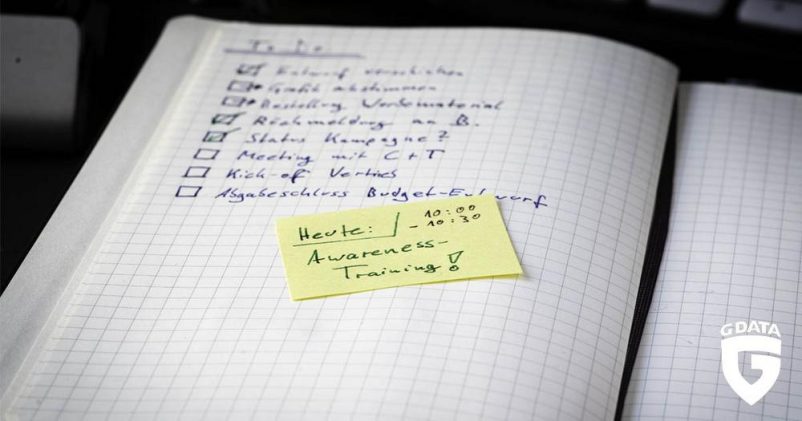 To Do
Entwurf verschicken
Grafik abstimmen
Bestellung Werbematerial
Rückmeldung an B.
Status Kampagne?
Meeting mit C+T
Kick-off Vertrieb
Abgabeschluss Budget-Entwurf
Heute: 10:00
- 10:30
Awareness-
Training!
G DATA